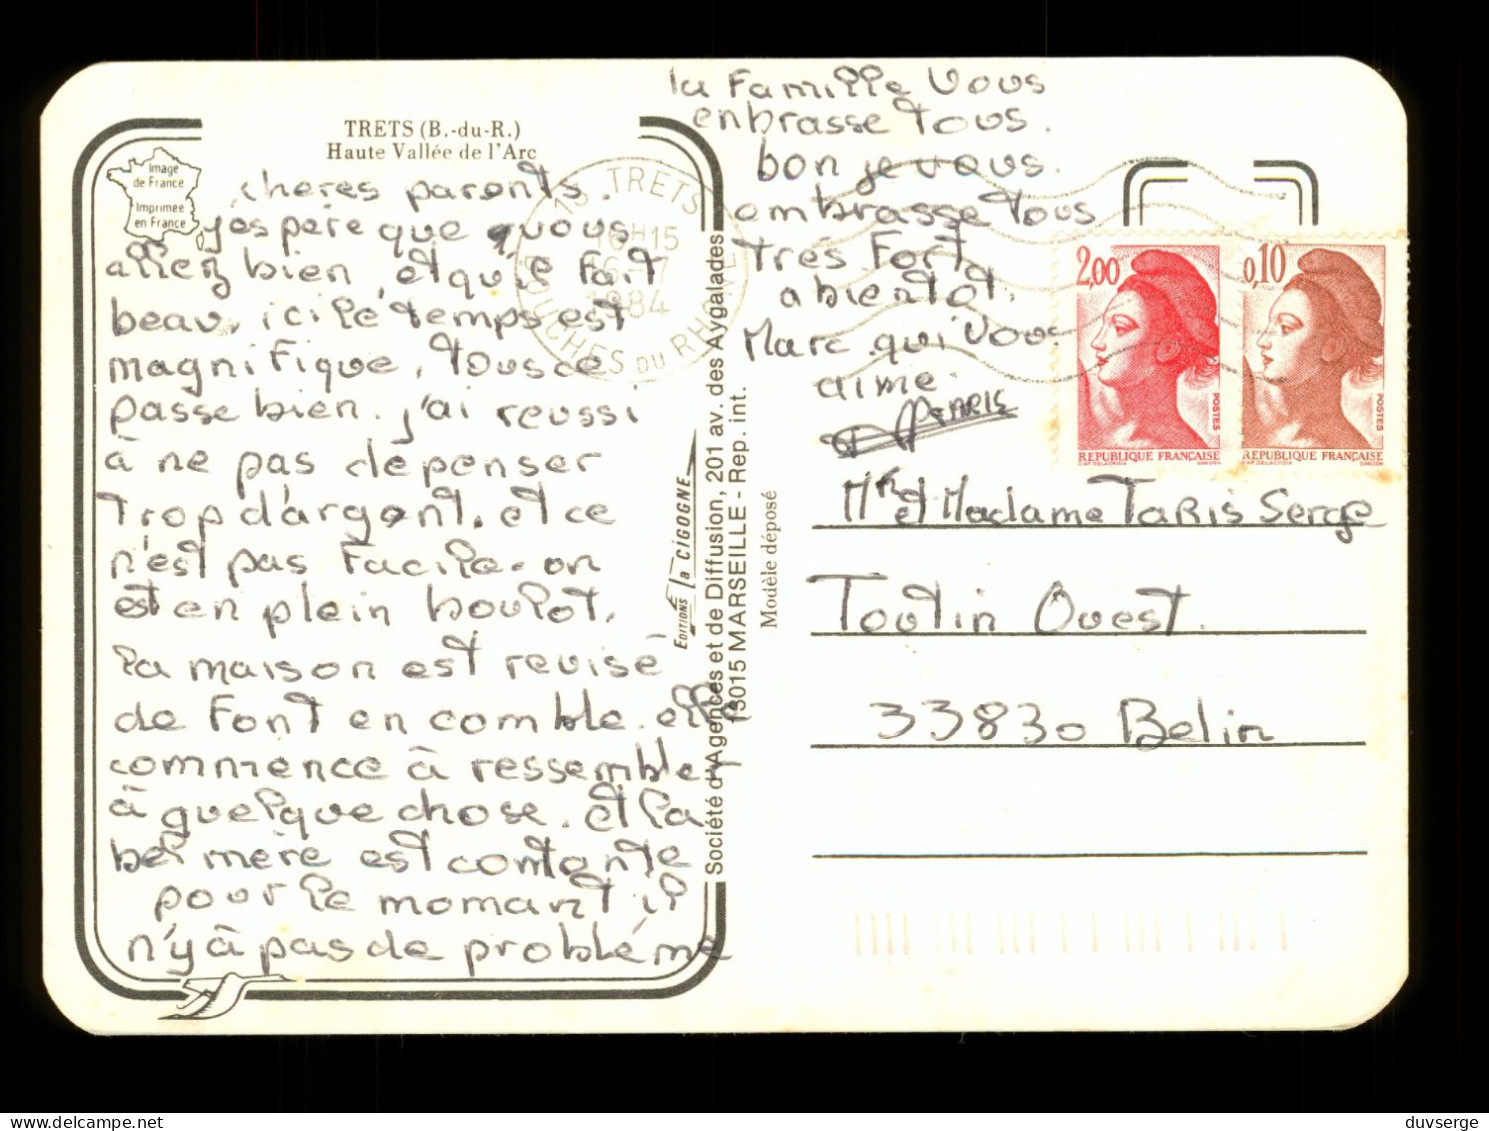 TRETS (B.-du-R.)
Haute Vallée de l'Arc
Image
de France
Imprimée
en France
chères parents.
j'espère que vous
allez bien, et qu'il fait
beau, ici le temps est
magnifique, tous ce
passe bien. j'ai reussi
à ne pas dépenser
Trop d'argent, et ce
n'est pas facile. on
est en plein boulot.
la maison est revisé
de font en comble. elle
commence à ressembler
à quelque chose. et la
bel mère est contante
pour le momant il
n'y à pas de problème
la Famille Vous
enbrasse Tous.
bon je vous.
ambrasse tous
Trés Fort
a bientot.
Marc qui Vous
aime.
TARIS
13 TRETS
16H15
1984
BOUCHES DU RHONE
2,00
POSTES
REPUBLIQUE FRANÇAISE
D'AP. DELACROIX GANDON
0,10
POSTES
REPUBLIQUE FRANÇAISE
D'AP. DELACROIX GANDON
EDITIONS la CIGOGNE
Société d'Agences et de Diffusion, 201 av. des Aygalades
13015 MARSEILLE - Rep. int.
Modèle déposé
Mr et Madame TARIS Serge
Toutin Ouest.
33830 Belin
duvserge